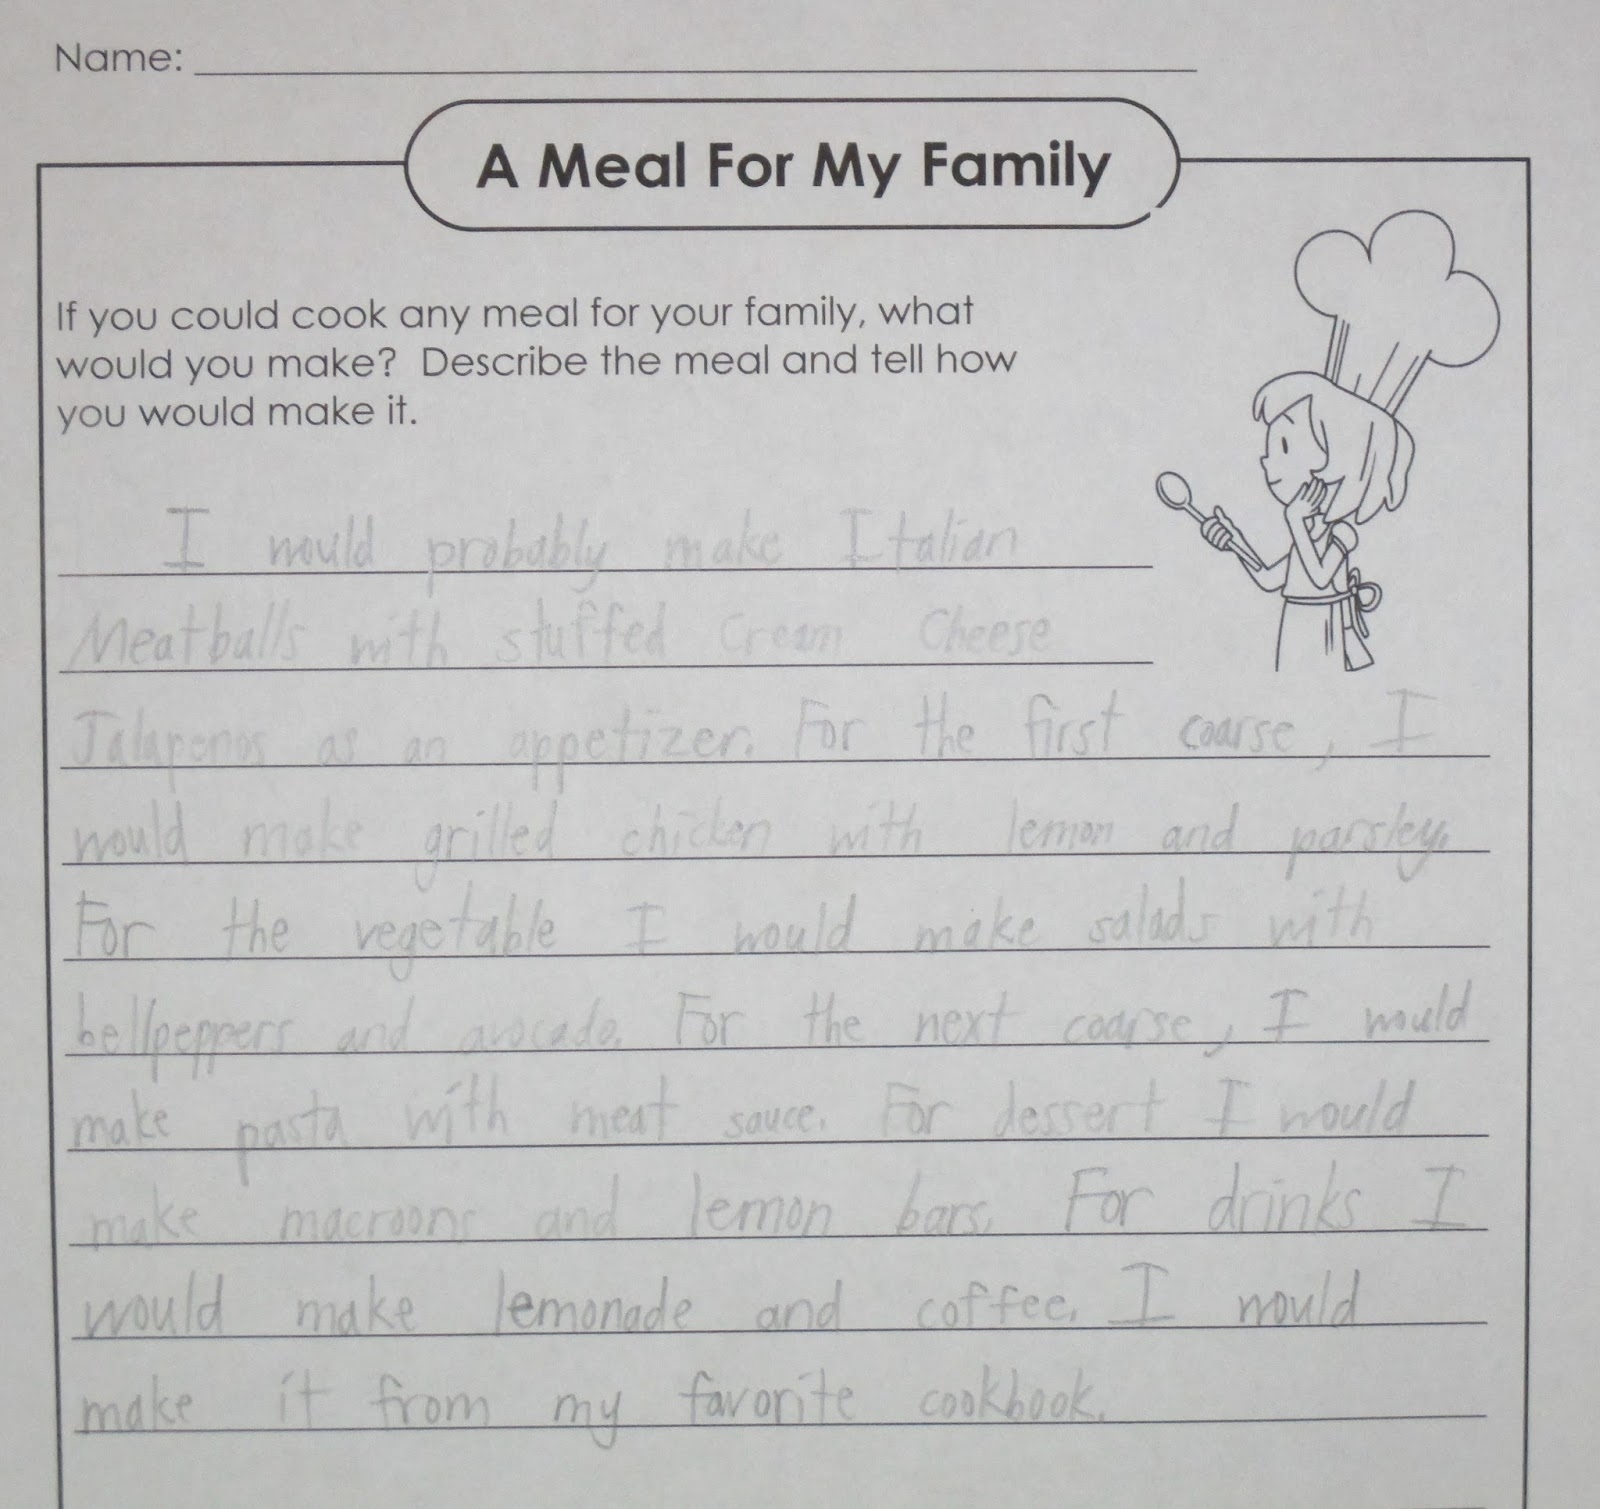 Name:
A Meal For My Family
If you could cook any meal for your family, what
would you make? Describe the meal and tell how
you would make it.
I would probably make Italian
Meatballs with stuffed Cream Cheese
Jalapenos as an appetizer. For the first coarse, I
would make grilled chicken with lemon and parsley.
For the vegetable I would make salads with
bellpeppers and avocado. For the next coarse, I would
make pasta with meat sauce. For dessert I would
make macroons and lemon bars. For drinks I
would make lemonade and coffee. I would
make it from my favorite cookbook.